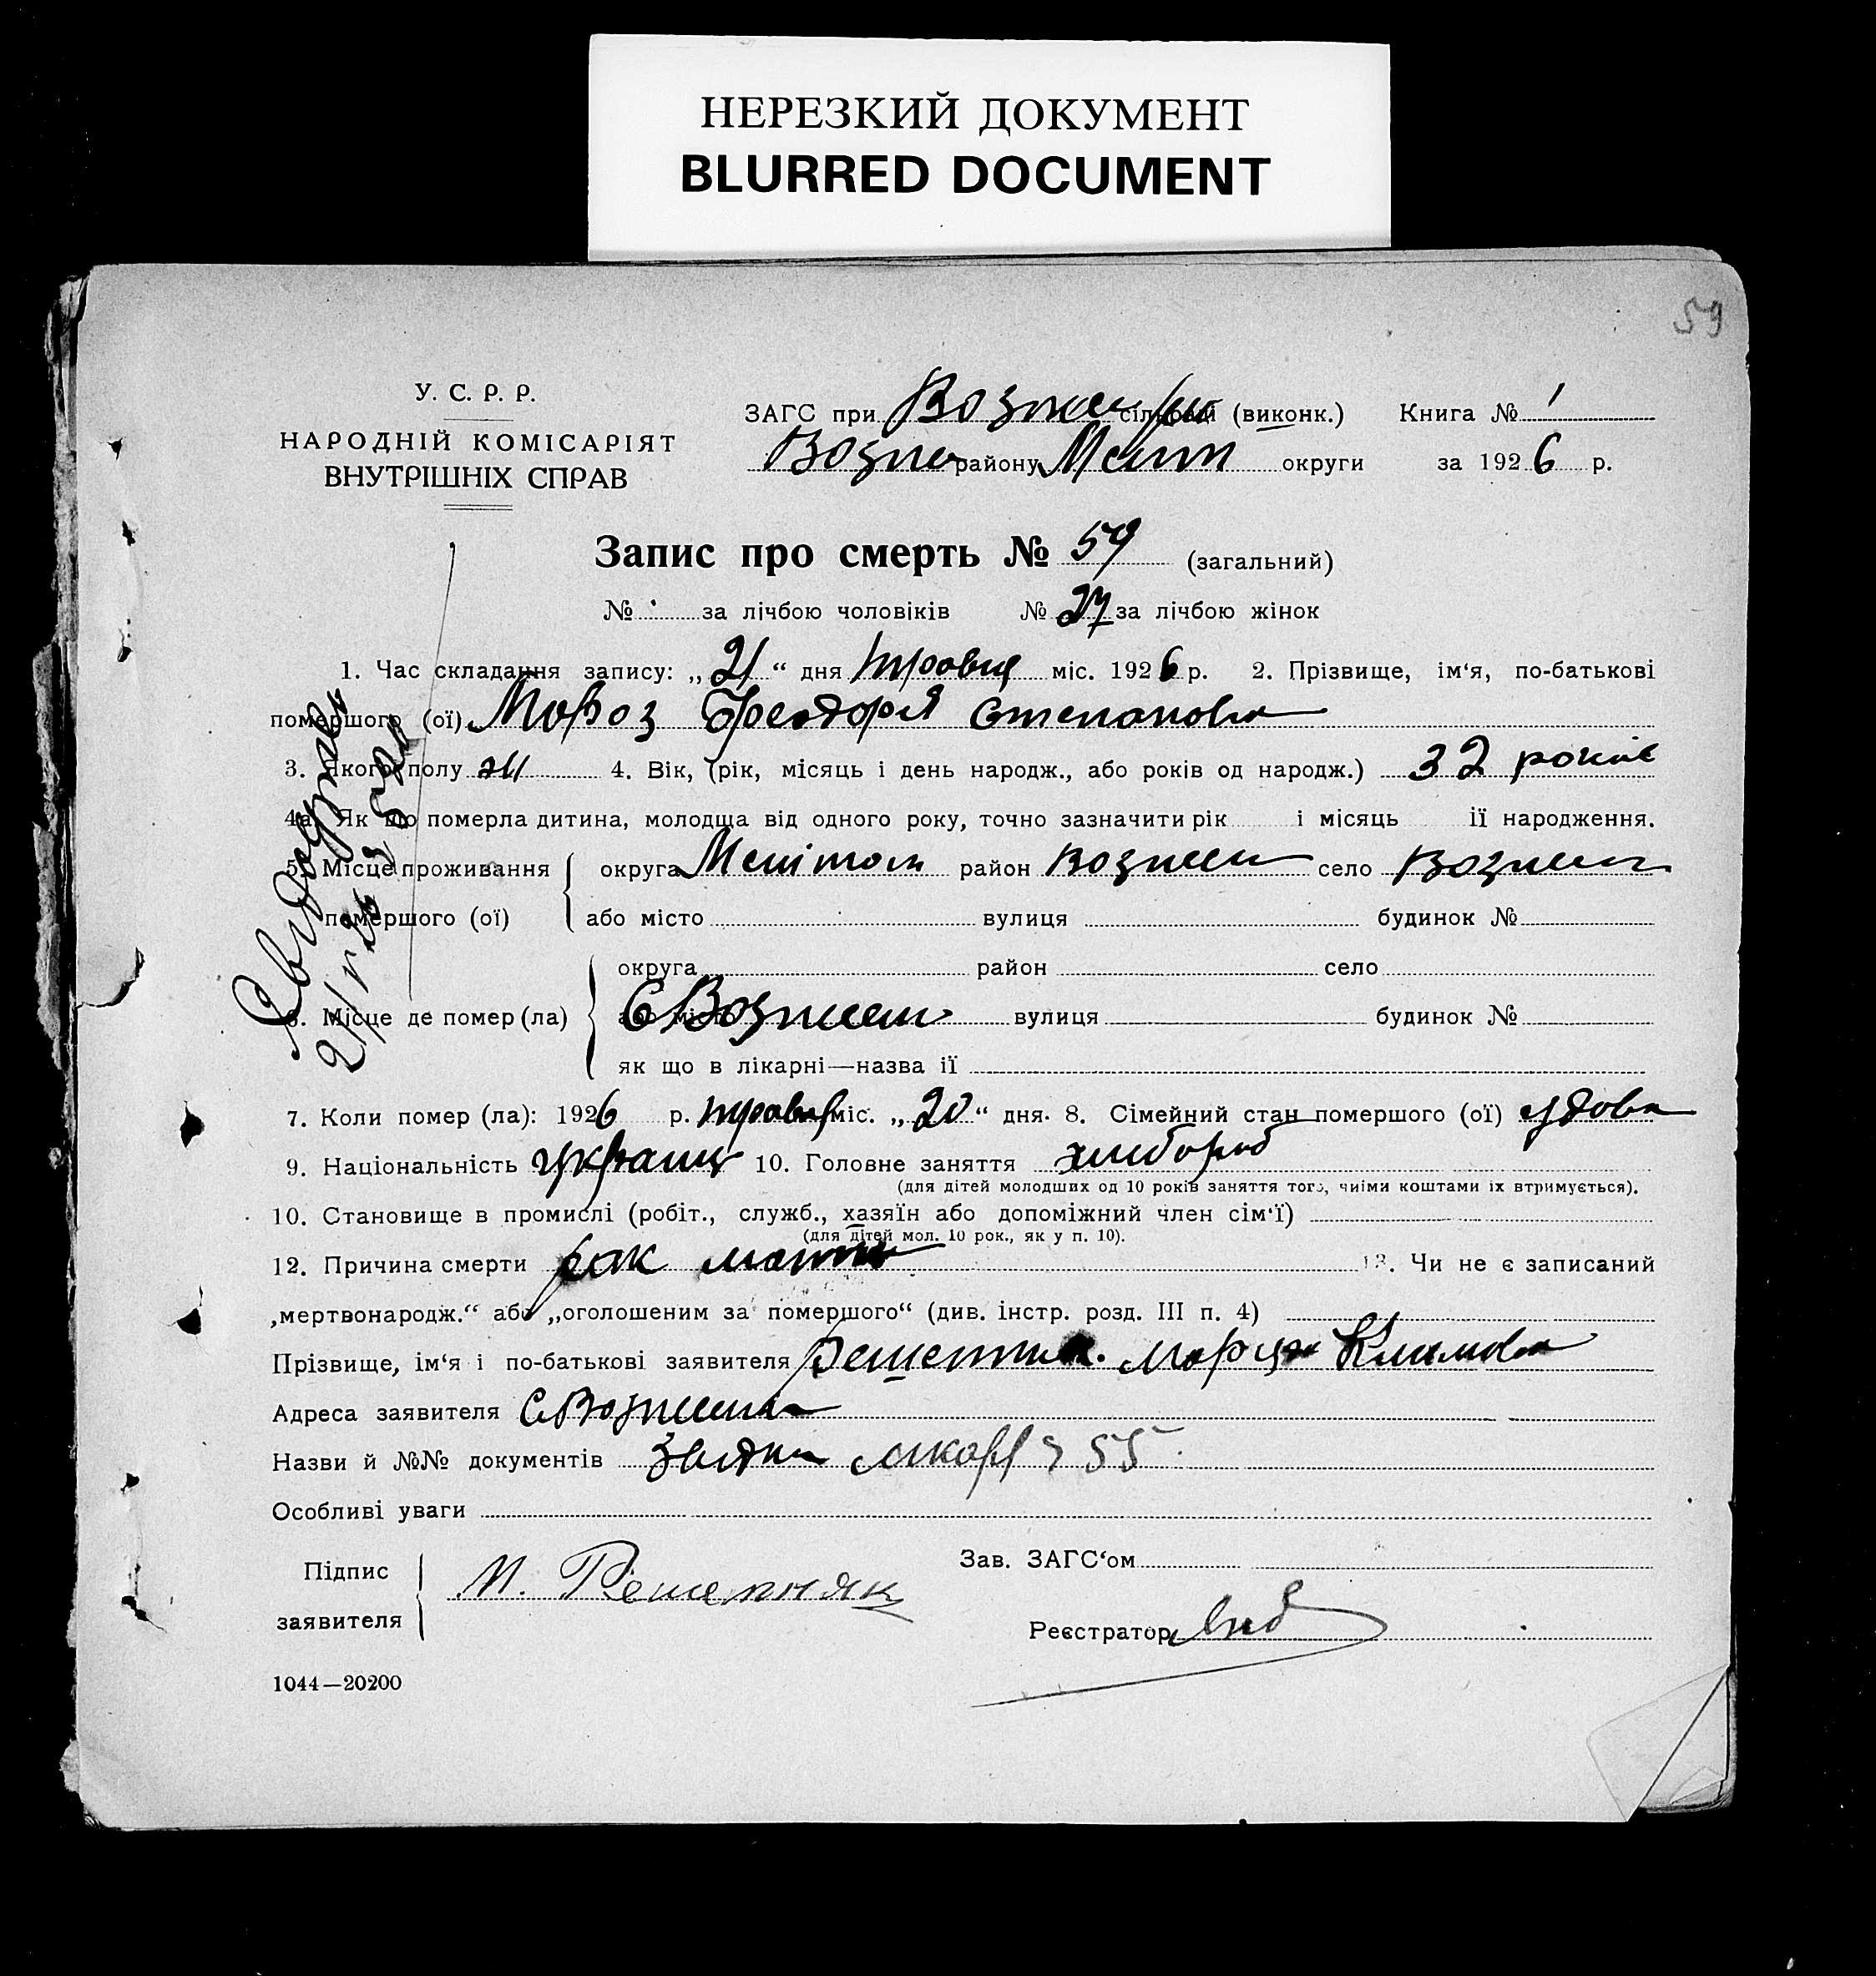 НЕРЕЗКИЙ ДОКУМЕНТ
BLURRED DOCUMENT
59
У. С. Р. Р.
НАРОДНІЙ КОМІСАРІЯТ
ВНУТРІШНІХ СПРАВ
ЗАГС при сільради (виконк.) Книга № 1
Возне району Меліт округи за 1926 р.
Запис про смерть № 59 (загальний)
№ за лічбою чоловіків № 27 за лічбою жінок
1. Час складання запису: „21“ дня травця міс. 1926 р. 2. Прізвище, ім‘я, по-батькові
помершого (ої) Мороз Феодора Степанова
3. Якого полу жи 4. Вік, (рік, місяць і день народж., або років од народж.) 32 років
4а. Як що померла дитина, молодща від одного року, точно зазначити рік і місяць її народження.
5. Місце проживання округа Мелітоп район Вознесен село Вознесен
помершого (ої) або місто вулиця будинок №
округа район село
6. Місце де помер (ла) або місто С Вознесен вулиця будинок №
як що в лікарні—назва її
7. Коли помер (ла): 1926 р. травця міс. „20“ дня. 8. Сімейний стан помершого (ої) удова
9. Національність украинц 10. Головне заняття хлибороб
(для дітей молодших од 10 років заняття того, чиїми коштами їх втримується).
10. Становище в промислі (робіт., служб., хазяїн або допоміжний член сім‘ї)
(для дітей мол. 10 рок., як у п. 10).
12. Причина смерти рак матки 13. Чи не є записаний
„мертвонародж.“ або „оголошеним за помершого“ (див. інстр. розд. III п. 4)
Прізвище, ім‘я і по-батькові заявителя Климова
Адреса заявителя С Вознесенка
Назви й №№ документів 55
Особливі уваги
Підпис
заявителя М. Решетняк
Зав. ЗАГС‘ом
Реєстратор
1044—20200